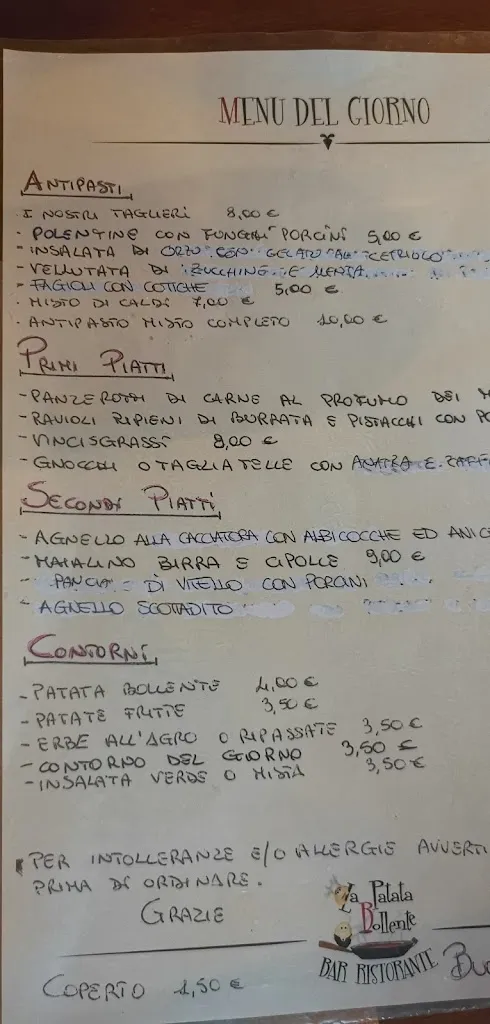 MENU DEL GIORNO
ANTIPASTI
· I NOSTRI TAGLIERI 8,00 €
· POLENTINE CON FUNGHI PORCINI 5,00 €
- INSALATA DI ORZO CON GELATO AL CETRIOLO
- VELLUTATA DI ZUCCHINE E MENTA
- FAGIOLI CON COTICHE 5,00 €
· MISTO DI CALDI 7,00 €
· ANTIPASTO MISTO COMPLETO 10,00 €
PRIMI PIATTI
- PANZEROTTI DI CARNE AL PROFUMO DEI
- RAVIOLI RIPIENI DI BURRATA E PISTACCHI CON
- VINCISGRASSI 8,00 €
- GNOCCHI O TAGLIATELLE CON ANATRA E
SECONDI PIATTI
- AGNELLO ALLA CACCIATORA CON ALBICOCCHE ED
- MAIALINO BIRRA E CIPOLLE 9,00 €
- PANCIA DI VITELLO CON PORCINI
- AGNELLO SCOTADITO
CONTORNI
- PATATA BOLLENTE 4,00 €
- PATATE FRITTE 3,50 €
- ERBE ALL'AGRO O RIPASSATE 3,50 €
- CONTORNO DEL GIORNO 3,50 €
- INSALATA VERDE O MISTA 3,50 €
PER INTOLLERANZE E/O ALLERGIE AVVERTI
PRIMA DI ORDINARE.
GRAZIE
La Patata
Bollente
BAR RISTORANTE
COPERTO 1,50 €